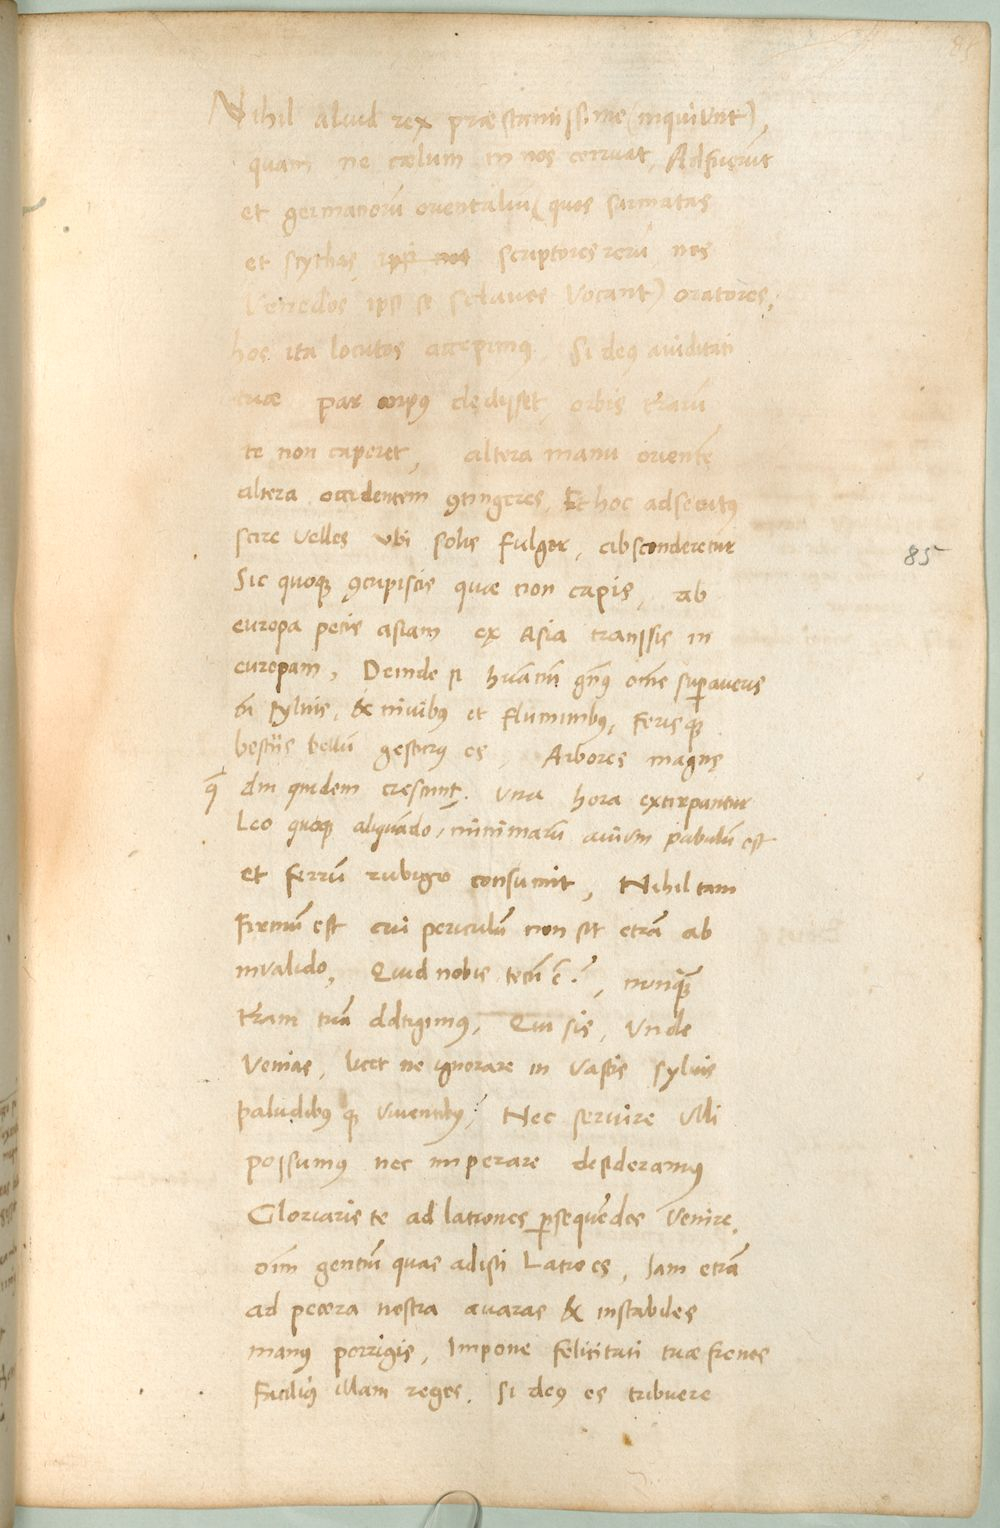 85
Nihil aliud rex præstantissime (inquiunt),
quam ne cælum in nos corruat, Adfuerūt
et germanorū orientaliū (quos sarmatas
et scythas, ipsi nos scriptores rerū nos
Venedos ipsi se sclavos vocant) oratores,
hos ita locutos accepimus, Si deus aviditati
tuæ par corpus dedisset, orbis t̄rarū
te non caperet, altera manu orientē
altera occidentem ꝯtingeres, Et hoc adsecutus
scire velles ubi solis fulgor, absconderetur
Sic quoque ꝯcupiscis quæ non capis, ab
europa petis asiam ex Asia transsis in
europam, Deinde si huānū gn̄us om̄e superaveris
cū sylvis, & nivibus et fluminibus, ferisque
bestiis bellū gesturus es, Arbores magnę
q̄ diu quidem crescunt, una hora extirpantur
Leo quoque aliquādo, minimarū avium pabulū est
et ferrū rubigo consumit, Nihil tam
Firmū est cui periculū non sit etiā ab
invalido, Quid nobis tecū ē? nunquā
t̄ram tuā attigimus, Qui sis, unde
Venias, licet ne ignorare in vastis sylvis
paludibusque viventibus, Nec servire ulli
possumus nec imperare desideramus
Gloriaris te ad latrones persequēdos venire,
oīm gentiū quas adisti Latro es, Jam etiā
ad pecora nostra avaras & instabiles
manus porrigis, Impone felicitati tuæ frenos
Facilius illam reges. Si deus es tribuere
85